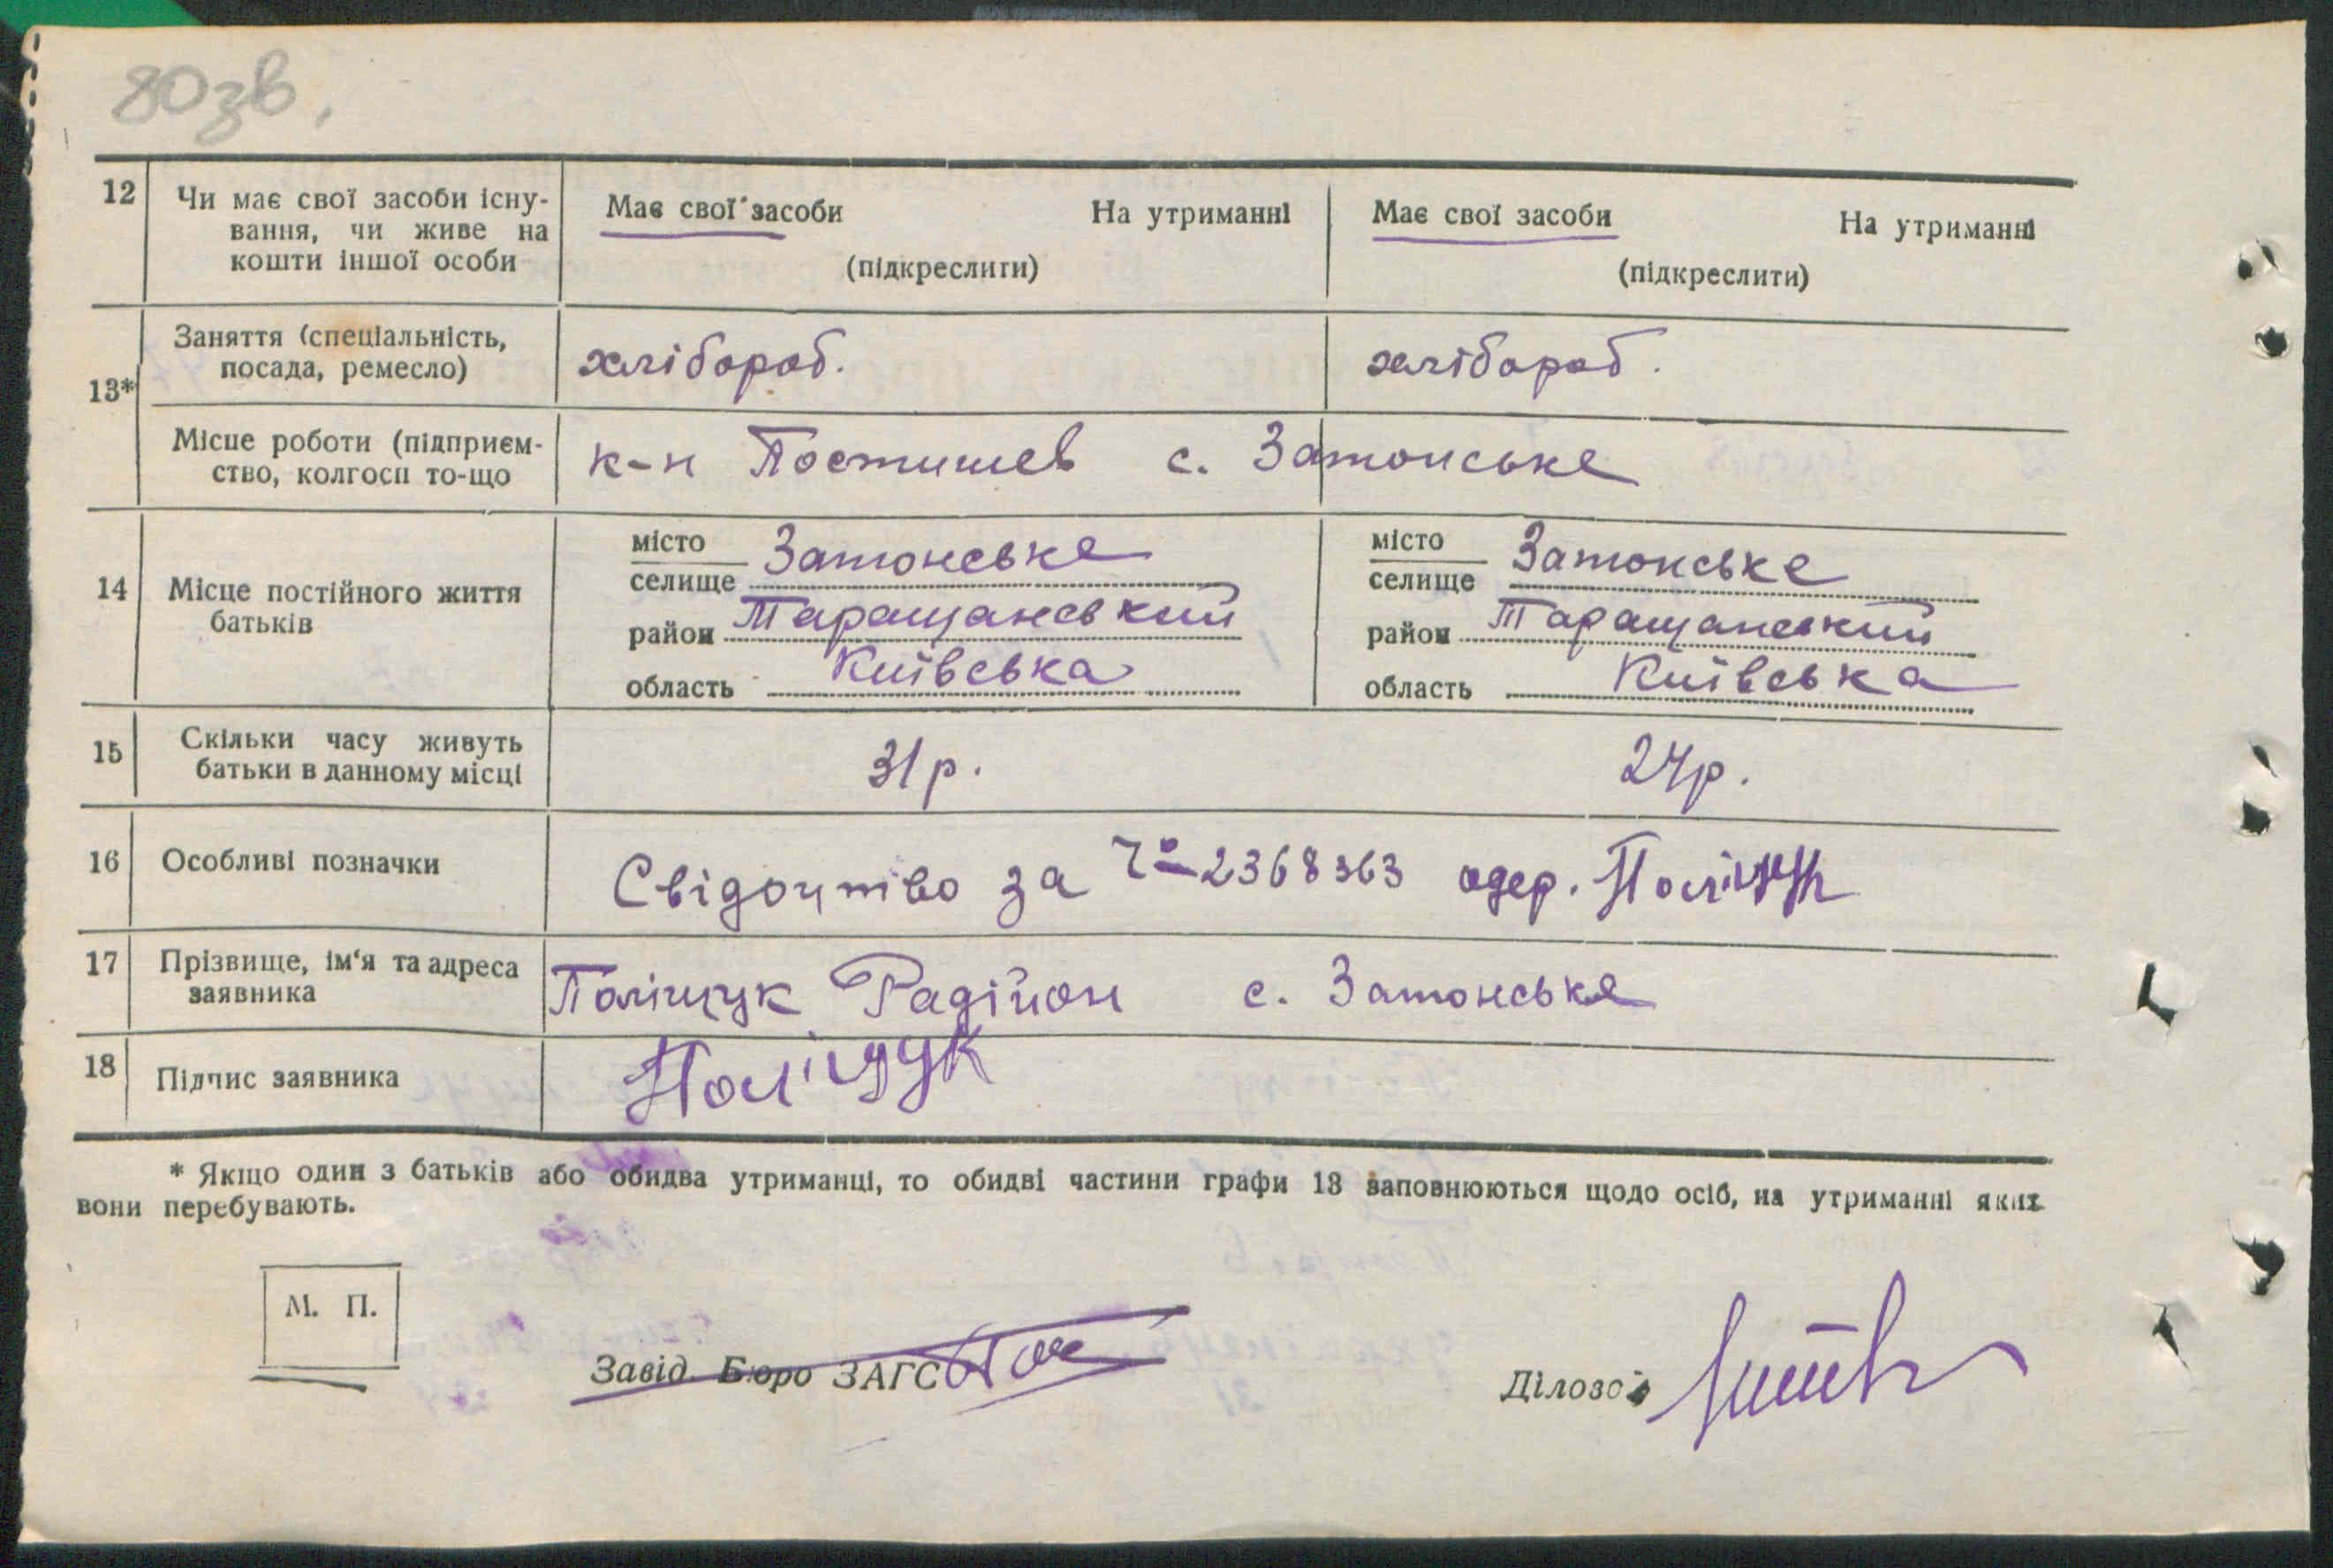 80зв.
12 Чи має свої засоби існу- Має свої засоби На утриманні Має свої засоби На утриманні
вання, чи живе на
кошти іншої особи (підкреслити) (підкреслити)
Заняття (спеціальність,
посада, ремесло) хлібороб. хлібороб.
13*
Місце роботи (підприєм-
ство, колгосп то-що к-н Постишев с. Затонське
місто місто
селище Затонське селище Затонське
14 Місце постійного життя
батьків район Таращанський район Таращанський
область Київська область Київська
15 Скільки часу живуть
батьки в данному місці 31р. 24р.
16 Особливі позначки Свідоцтво за 2368363 одер. Поліщук
17 Прізвище, ім'я та адреса
заявника Поліщук Радійон с. Затонське
18 Підпис заявника Поліщук
* Якщо один з батьків або обидва утриманці, то обидві частини графи 13 заповнюються щодо осіб, на утриманні яких
вони перебувають.
М. П.
Завід. Бюро ЗАГС
Діловод